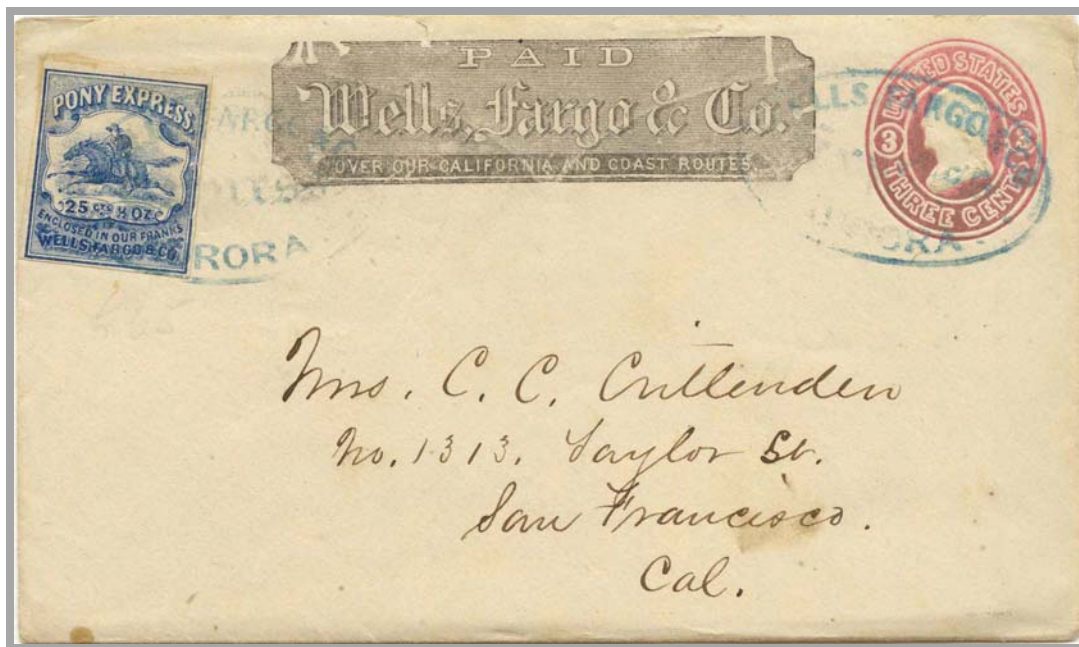 PONY EXPRESS.
25 CTS ½ OZ
ENCLOSED IN OUR FRANKS
WELLS, FARGO & CO.
PAID
Wells, Fargo & Co.
OVER OUR CALIFORNIA AND COAST ROUTES
UNITED STATES
3 3
THREE CENTS
WELLS, FARGO
RORA
Mrs. C. C. Crittenden
No. 1313. Taylor St.
San Francisco.
Cal.